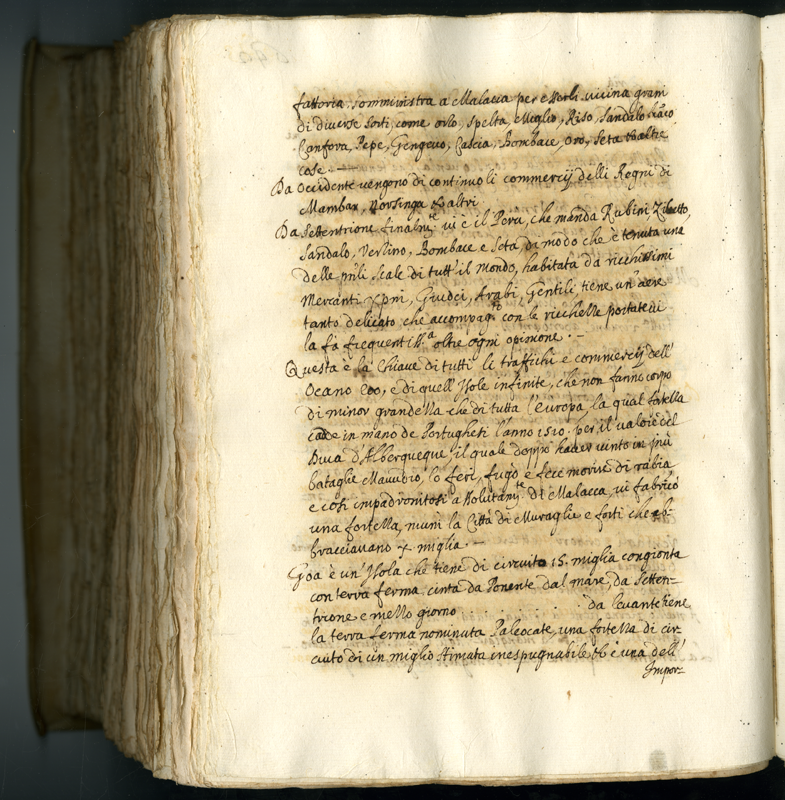 fattoria, somministra a Malacca per esserli vicina gram
di diverse sorti, come orzo, spelta, Meglio, Riso, Sandalo
Canfora, Pepe, Gengevo, Cascia, Bombace, oro, Seta et altre
cose. —
Da Occidente vengono di continuo li commercij delli Regni di
Mambar, Norsinga et altri
Da Settentrione finalmte vi è il Peru, che manda Rubini Zibetto,
Sandalo, Versino, Bombace e Seta, di modo che è tenuta una
delle mli scale di tutt'il mondo, habitata da ricchissimi
Mercanti Xpni, Giudei, Arabi, Gentili, tiene un'aere
tanto delicato che accompagto con le ricchezze portatevi
la fà frequentissa oltre ogni opinione. —
Questa è la Chiave di tutti li traffichi e commercij dell'
Ocano Eoo, e di quell'Isole infinite, che non fanno corpo
di minor grandezza che di tutta l'europa, la qual fortezza
cade in mano de Portughesi l'anno 1510. per il valore del
Duca d'Alberqueque, il quale doppo haver vinto in più
battaglie Maumbio, lo ferì, fugò e fece morire di rabia
e così impadronitosi di Malacca, vi fabricò
una fortezza, munì la Città di Muraglie e forti che ab-
bracciavano X miglia. —
Goa è un'Isola che tiene di circuito 15. miglia congionta
con terra ferma, cinta da Ponente dal mare, da Setten-
trione e mezzo giorno . . . . . . . . . da levante tiene
la terra ferma nominata Paleocate, una fortezza di cir-
cuito di un miglio stimata inespugnabile et è una dell'
Impor-